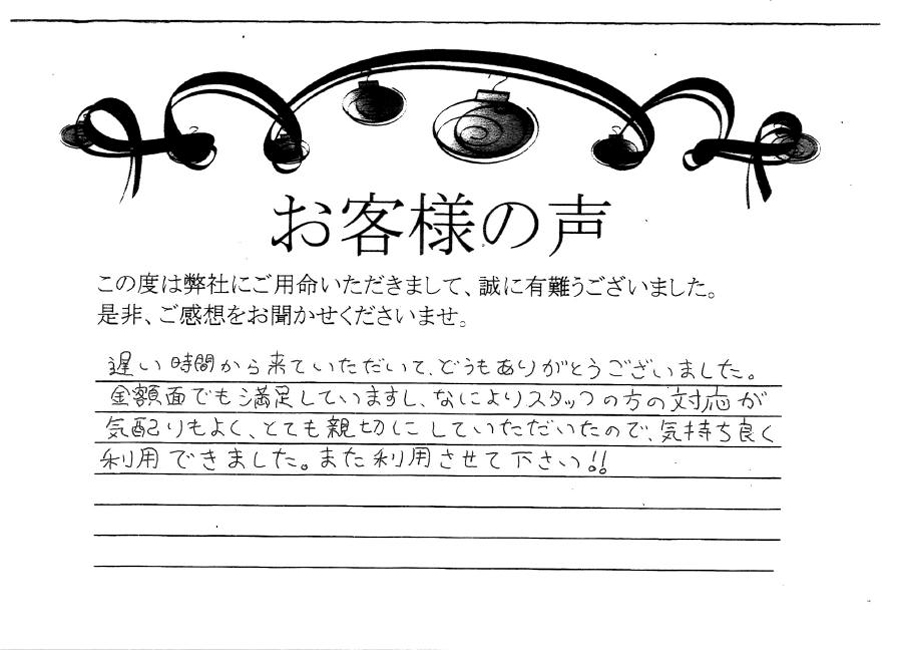 お客様の声
この度は弊社にご用命いただきまして、誠に有難うございました。
是非、ご感想をお聞かせくださいませ。
遅い時間から来ていただいて、どうもありがとうございました。
金額面でも満足していますし、なによりスタッフの方の対応が
気配りもよく、とても親切にしていただいたので、気持ち良く
利用できました。また利用させて下さい!!